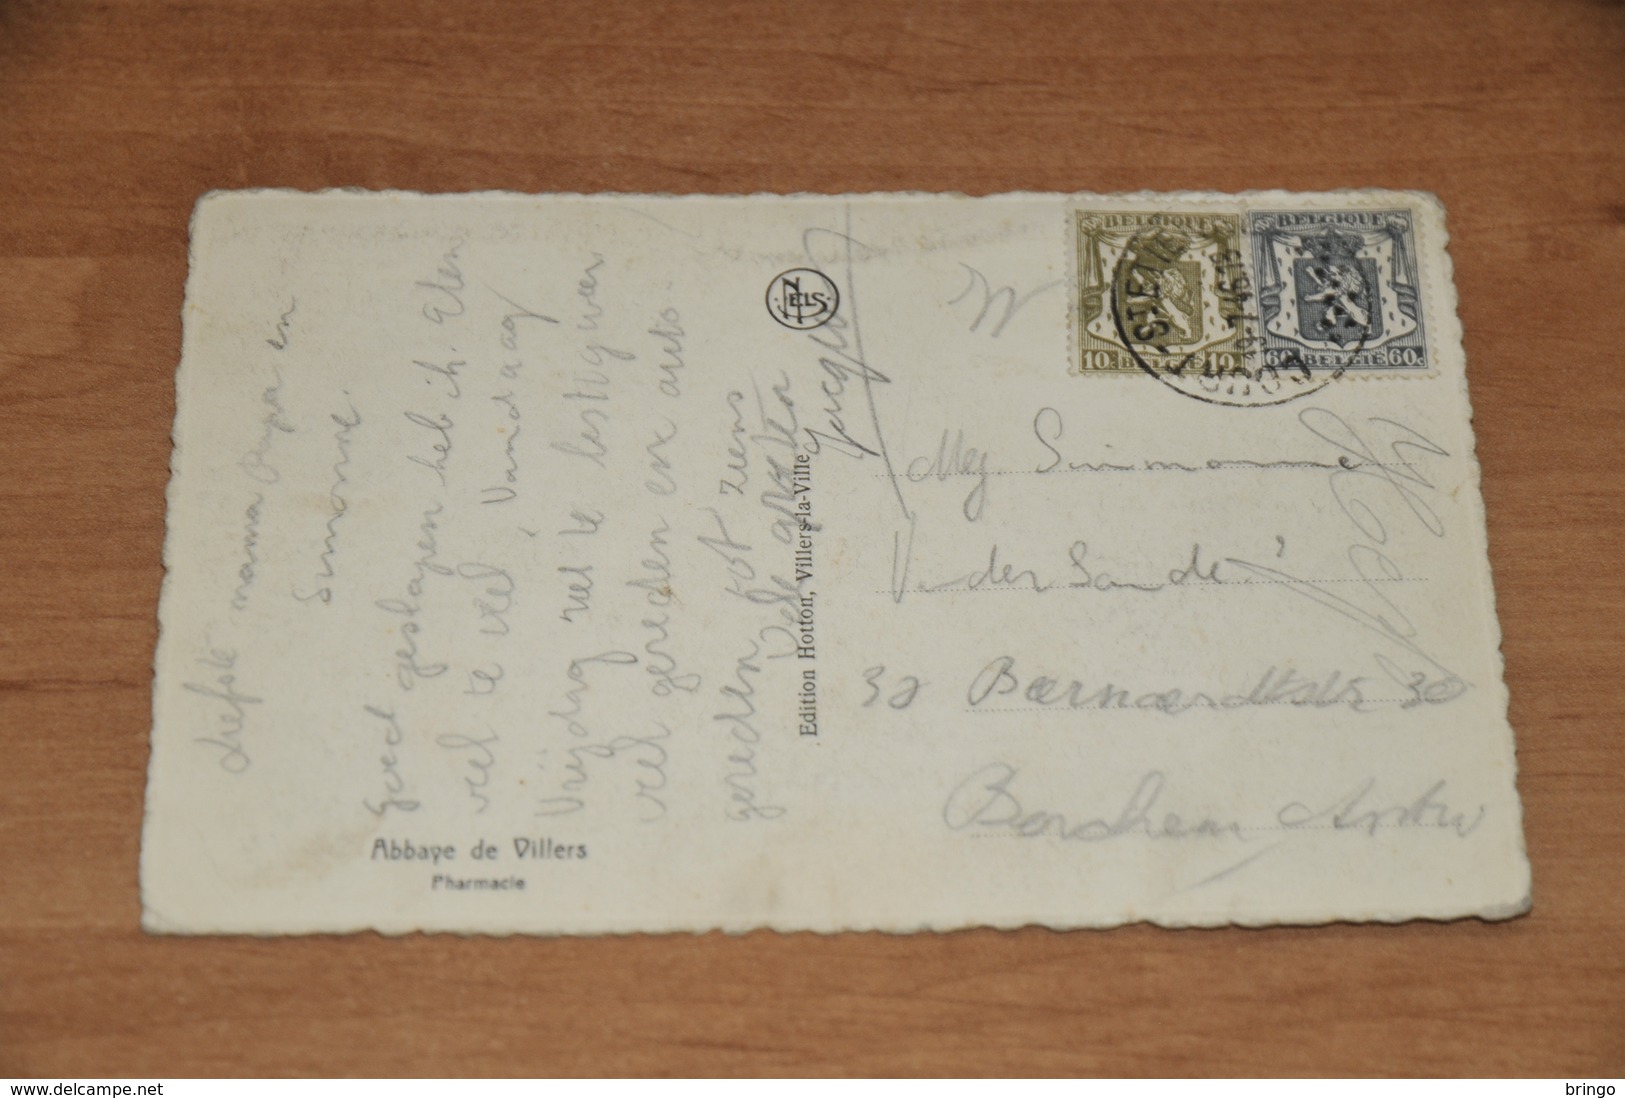 Liefste mama Papa en
Simonne.
Goed geslapen heb ik. Eten
veel te veel, Vandaag
Vrijdag veel te
veel gereden en auto
gereden tot ziens
Vele groeten
Jacques
Abbaye de Villers
Pharmacie
NELS
Edition Hotton, Villers-la-Ville
BELGIQUE
10c BELGIË 10c
BELGIQUE
60c BELGIË 60c
Mej. Simmonne
V. der Sande
30 30
Borchem Antw
bringo
delcampe.net